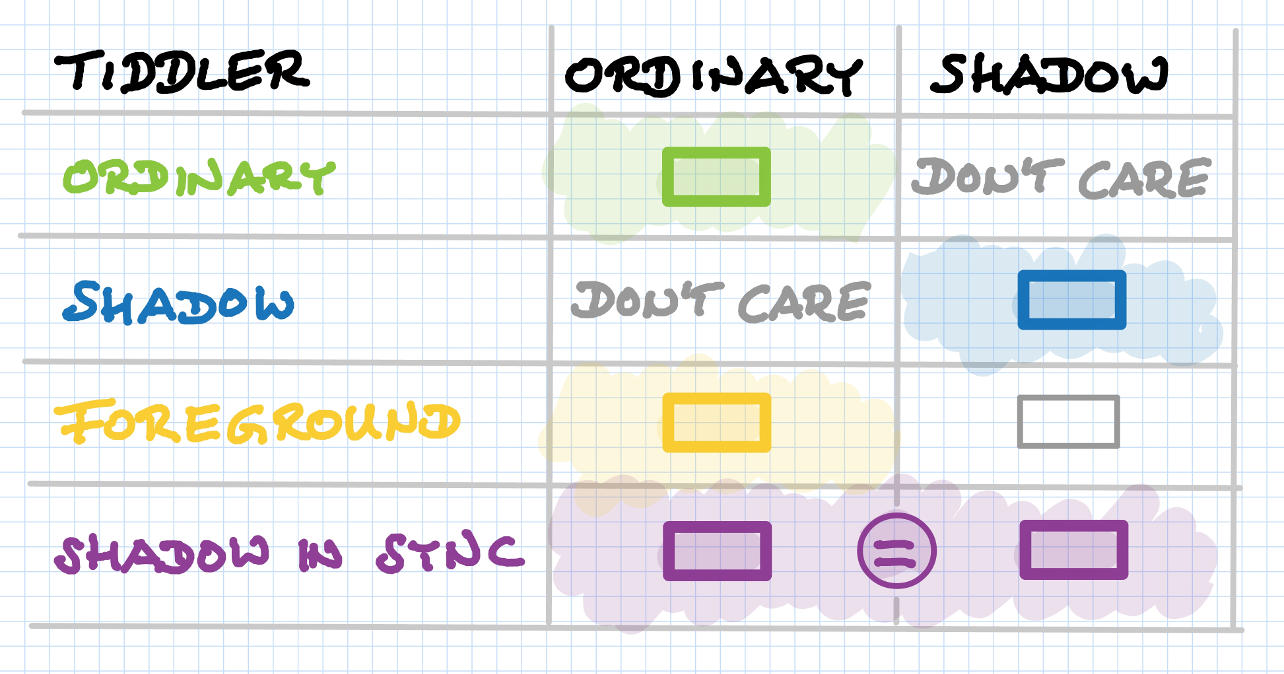 TIDDLER ORDINARY SHADOW
ORDINARY DON'T CARE
SHADOW DON'T CARE
FOREGROUND
SHADOW IN SYNC =